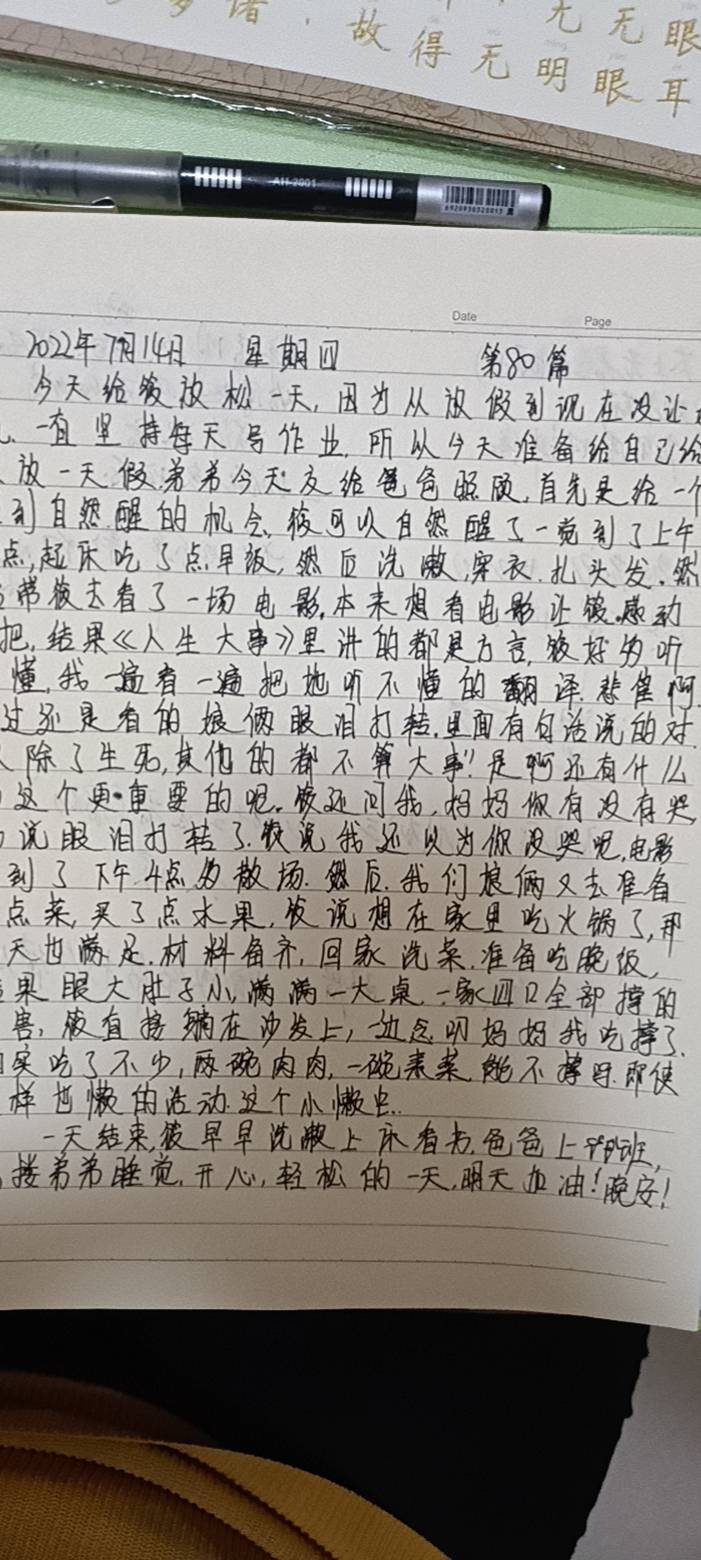 故得无明眼耳
无无眼
AH-2001
6920930320013
Date
Page
2022年7月14日 星期四 第80篇
今天给筱放松一天,因为从放假到现在没让
一直坚持每天写作业,所以今天准备给自己给
放一天假,弟弟今天交给爸爸照顾,首先是给一个
到自然醒的机会,筱可以自然醒了一觉到了上午
点,起床吃了点早饭,然后洗漱,穿衣,扎头发,然
带筱去看了一场电影,本来想看电影让筱感动
把,结果《人生大事》里讲的都是方言,筱好多听
懂,我一遍看一遍把她听不懂的翻译,悲催啊
过还是看的娘俩眼泪打转,里面有句话说的对
除了生死,其他的都不算大事!是啊还有什么
这个更重要的呢。筱还问我,妈妈你有没有哭
说眼泪打转了,筱说我还以为你没哭呢,电影
到了下午4点多散场,然后,我们娘俩又去准备
点菜,买了点水果,筱说想在家里吃火锅了,那
天也满足,材料备齐,回家洗菜,准备吃晚饭,
果眼大肚子小,满满一大桌,一家四口全部撑的
害,筱直接躺在沙发上,一边念叨妈妈我吃撑了,
实吃了不少,两碗肉肉,一碗素菜能不撑吗,即使
样也懒的活动,这个小懒虫..
一天结束,筱早早洗漱上床看书,爸爸上班,
接弟弟睡觉,开心,轻松的一天,明天加油!晚安!